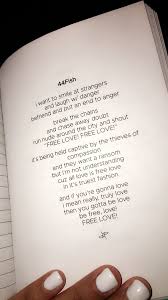 44Fish
i want to smile at strangers
and laugh w/ danger
befriend end but an end to anger
break the chains
and chase away doubt
run nude around the city and shout
"FREE LOVE! FREE LOVE!"
it's being held captive by the thieves of
compassion
and they want a ransom
but i'm not understanding
cuz all love is free love
in it's truest fashion.
and if you're gonna love
i mean really, truly love
then you gotta be love
be free, love!
FREE LOVE!